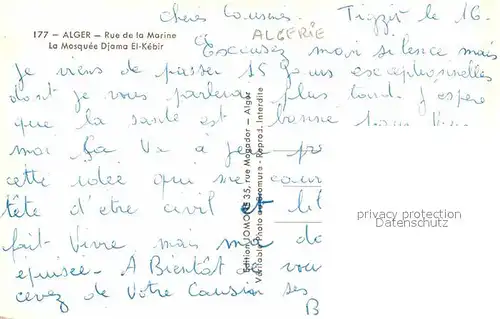 chères Cousines. Tigzirt le 16.
177 — ALGER — Rue de la Marine
ALGERIE
La Mosquée Djama El-Kébir
Excusez mon silence mais
je viens de passer 15 jours exceptionnelles
dont je vous parlerai plus tard. J espère
que la santé est bonne
moi ça va à
cette idée que me cour
tête d'etre civil et
fait vivre, mais
épuisée - A Bientôt de vou
cevez de Votre Cousin ses
B
Edition JOMONE 35, rue Mogador — Alger
Véritable Photo au Bromure - Reprod. Interdite
privacy protection
Datenschutz